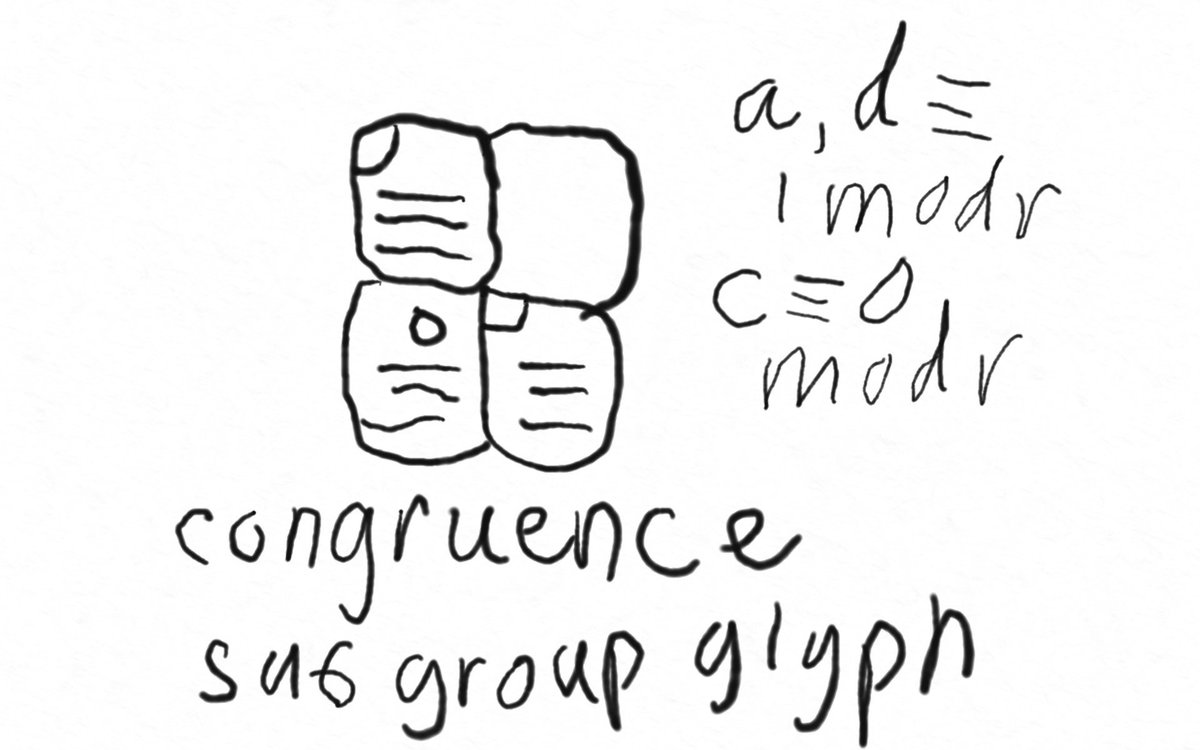 a, d ≡
1 mod r
c ≡ 0
mod r
congruence
subgroup glyph